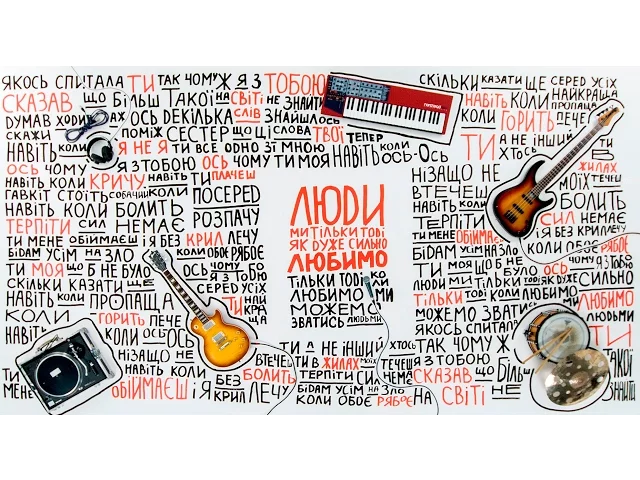 ЯКОСЬ СПИТАЛА ТИ ТАК ЧОМУ Ж Я З ТОБОЮ СКІЛЬКИ КАЗАТИ ЩЕ СЕРЕД УСІХ
СКАЗАВ ЩО БІЛЬШ ТАКОЇ НА СВІТІ НЕ ЗНАЙТИ НАВІТЬ КОЛИ НАЙКРАЩА
ДУМАВ ХОДИВ АХ ОСЬ ДЕКІЛЬКА СЛІВ ЗНАЙШЛОСЬ КОЛИ ГОРИТЬ ПЕЧЕ
СКАЖИ ПОМІЖ СЕСТЕР ЩО ЦІ СЛОВА ТВОЇ ТЕПЕР ТИ А НЕ ІНШИЙ
НАВІТЬ КОЛИ Я НЕ Я ТИ ВСЕ ОДНО ЗІ МНОЮ ХТОСЬ
ОСЬ ЧОМУ Я З ТОБОЮ ОСЬ ЧОМУ ТИ МОЯ НАВІТЬ КОЛИ ОСЬ-ОСЬ В ЖИЛАХ
НАВІТЬ КОЛИ КРИЧУ НАВІТЬ ТИ ПЛАЧЕШ НІЗАЩО НЕ МОЇХ ТЕЧЕШ
ГАВКІТ СТОЇТЬ СОБАЧИЙ КОЛИ ПОСЕРЕД ВТЕЧЕШ
НАВІТЬ КОЛИ БОЛИТЬ РОЗПАЧУ НАВІТЬ КОЛИ БОЛИТЬ
ТЕРПІТИ СИЛ НЕМАЄ ТЕРПІТИ СИЛ НЕМАЄ
ТИ МЕНЕ ОБІЙМАЄШ І Я БЕЗ КРИЛ ЛЕЧУ ТИ МЕНЕ ОБІЙМАЄШ І Я БЕЗ КРИЛ ЛЕЧУ
БІДАМ УСІМ НА ЗЛО КОЛИ ОБОЄ РЯБОЄ БІДАМ УСІМ НА ЗЛО КОЛИ ОБОЄ РЯБОЄ
ТИ МОЯ ЩО Б НЕ БУЛО ОСЬ ЧОМУ БО Я З ТОБОЮ ТИ МОЯ ЩО Б НЕ БУЛО ОСЬ ЧОМУ Я З ТОБОЮ
СКІЛЬКИ КАЗАТИ ЩЕ СЕРЕД УСІХ ЛЮДИ МИ ТІЛЬКИ ТОДІ ЯК ДУЖЕ СИЛЬНО
НАВІТЬ КОЛИ ПРОПАЩА ТИ НАЙКРАЩА ТІЛЬКИ ТОДІ КОЛИ ЛЮБИМО ЛЮБИМО
КОЛИ ГОРИТЬ ПЕЧЕ МОЖЕМО ЗВАТИСЬ ЛЮДЬМИ
НАВІТЬ КОЛИ ОСЬ-ОСЬ ЯКОСЬ СПИТАЛА ТИ
ЛЮДИ
МИ ТІЛЬКИ ТОДІ
ЯК ДУЖЕ СИЛЬНО
ЛЮБИМО
ТІЛЬКИ ТОДІ КОЛИ
ЛЮБИМО МИ
МОЖЕМО
ЗВАТИСЬ ЛЮДЬМИ
НІЗАЩО НЕ ВТЕЧЕШ ТИ А НЕ ІНШИЙ ХТОСЬ ТАК ЧОМУ Ж
НАВІТЬ КОЛИ БОЛИТЬ ТИ В ЖИЛАХ МОЇХ ТЕЧЕШ Я З ТОБОЮ
ТЕРПІТИ СИЛ НЕМАЄ СКАЗАВ ЩО БІЛЬШ ТАКОЇ
ТИ МЕНЕ ОБІЙМАЄШ І Я БЕЗ КРИЛ ЛЕЧУ БІДАМ УСІМ НА ЗЛО КОЛИ ОБОЄ РЯБОЄ НА СВІТІ НЕ ЗНАЙТИ